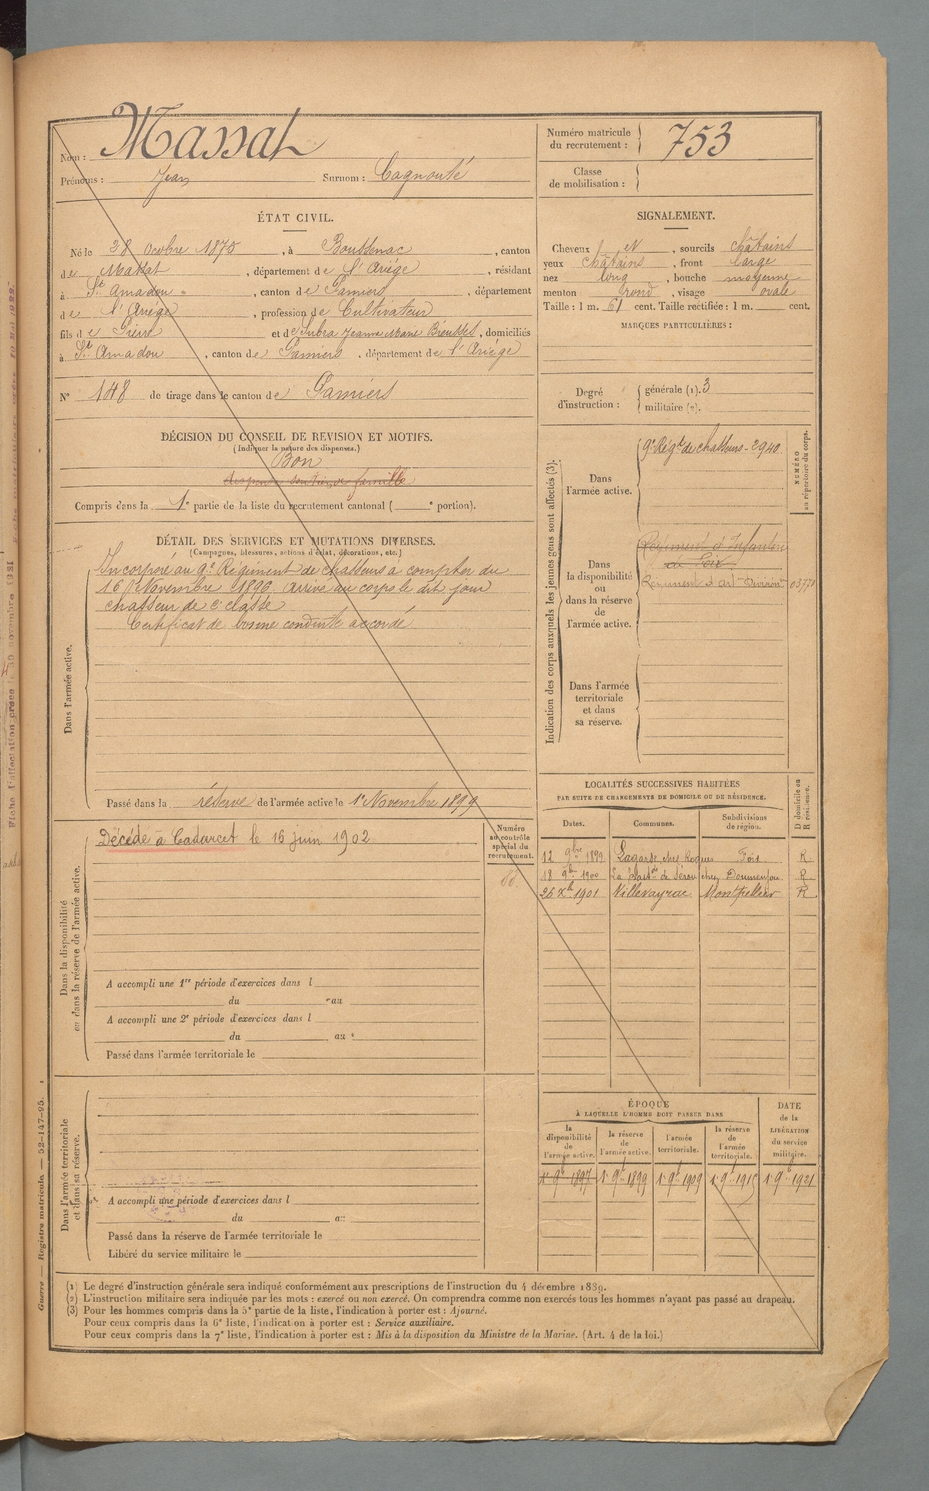 Nom : Massat
Prénoms : Jean Surnom : Cagnouté
Numéro matricule du recrutement : 753
Classe de mobilisation :
ÉTAT CIVIL.
Né le 28 Octobre 1875, à Boussenac, canton
de Massat, département de l'Ariège, résidant
à St Amadou, canton de Pamiers, département
de l'Ariège, profession de Cultivateur
fils de Pierre et de Subra Jeanne Marie, domiciliés
à St Amadou, canton de Pamiers, département de l'Ariège
N° 148 de tirage dans le canton de Pamiers
SIGNALEMENT.
Cheveux et, sourcils châtains
yeux châtains, front large
nez long, bouche moyenne
menton rond, visage ovale
Taille : 1 m. 61 cent. Taille rectifiée : 1 m. cent.
MARQUES PARTICULIÈRES :
Degré d'instruction : générale (1). 3
militaire (2).
DÉCISION DU CONSEIL DE REVISION ET MOTIFS.
(Indiquer la nature des dispenses.)
Bon
soutien de famille
Compris dans la 1e partie de la liste du recrutement cantonal ( e portion).
DÉTAIL DES SERVICES ET MUTATIONS DIVERSES.
(Campagnes, blessures, actions d'éclat, décorations, etc.)
Dans l'armée active.
Incorporé au 9e Régiment de chasseurs à compter du
16 Novembre 1896 arrivé au corps le dit jour
chasseur de 2e classe
Certificat de bonne conduite accordé
Passé dans la réserve de l'armée active le 1er Novembre 1899
Indication des corps auxquels les jeunes gens sont affectés (3).
NUMÉRO au répertoire du corps.
Dans l'armée active.
9e Régt de chasseurs - 2940
Dans la disponibilité ou dans la réserve de l'armée active.
Régiment d'Infanterie
de Foix
Régiment d'art
Dans l'armée territoriale et dans sa réserve.
LOCALITÉS SUCCESSIVES HABITÉES
PAR SUITE DE CHANGEMENTS DE DOMICILE OU DE RÉSIDENCE.
Dates. Communes. Subdivisions de région. D domicile ou R résidence.
12 9bre 1899 Lagarde chez Roques Foix R
18 9bre 1900 La Bastide de Sérou chez R
26 Xbre 1901 Villeveyrac Montpellier R
Dans la disponibilité ou dans la réserve de l'armée active.
Numéro au contrôle spécial du recrutement.
Décédé à Cadarcet le 16 juin 1902
A accompli une 1re période d'exercices dans l
du au
A accompli une 2e période d'exercices dans l
du au
Passé dans l'armée territoriale le
Dans l'armée territoriale et dans sa réserve.
A accompli une période d'exercices dans l
du au
Passé dans la réserve de l'armée territoriale le
Libéré du service militaire le
ÉPOQUE
À LAQUELLE L'HOMME DOIT PASSER DANS
la disponibilité de l'armée active. la réserve de l'armée active. l'armée territoriale. la réserve de l'armée territoriale. DATE de la LIBÉRATION du service militaire.
1er 9bre 1897 1er 9bre 1899 1er 9bre 1909 1er 9bre 1915 1er 9bre 1921
(1) Le degré d'instruction générale sera indiqué conformément aux prescriptions de l'instruction du 4 décembre 1889.
(2) L'instruction militaire sera indiquée par les mots : exercé ou non exercé. On comprendra comme non exercés tous les hommes n'ayant pas passé au drapeau.
(3) Pour les hommes compris dans la 5e partie de la liste, l'indication à porter est : Ajourné.
Pour ceux compris dans la 6e liste, l'indication à porter est : Service auxiliaire.
Pour ceux compris dans la 7e liste, l'indication à porter est : Mis à la disposition du Ministre de la Marine. (Art. 4 de la loi.)
Guerre — Registre matricule. — 52-147-95.